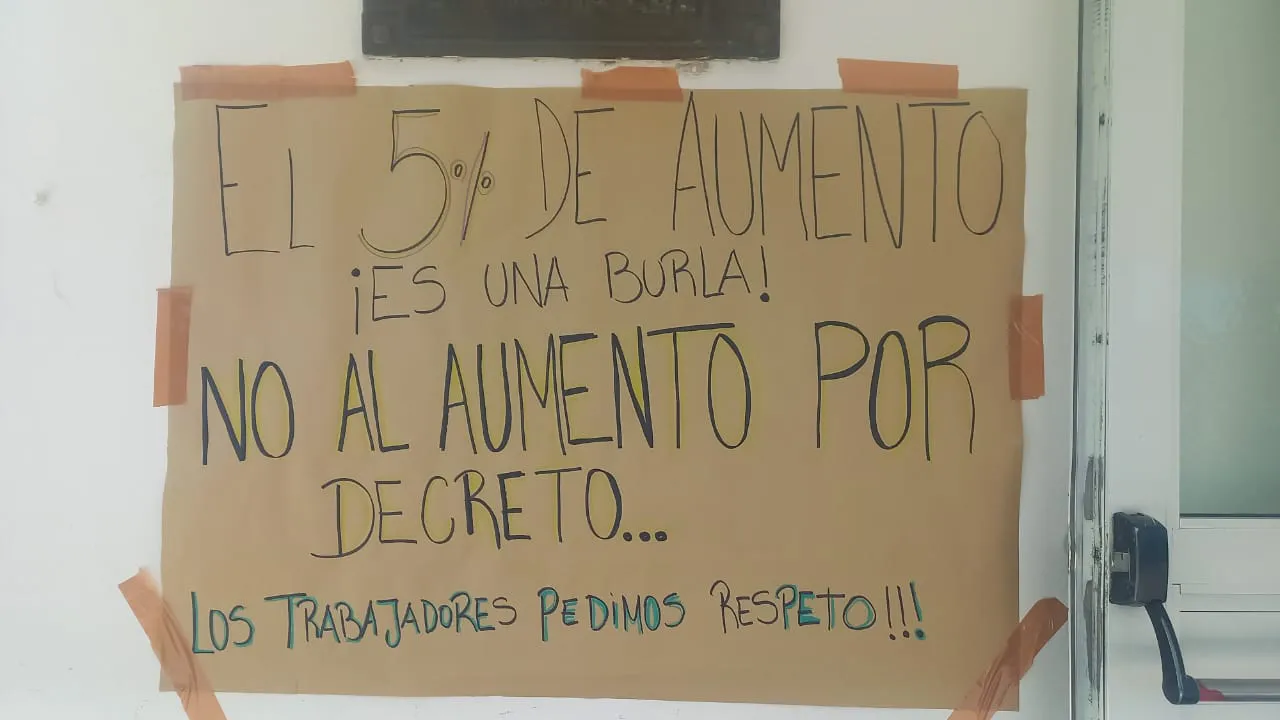 EL 5% DE AUMENTO
¡ES UNA BURLA!
NO AL AUMENTO POR
DECRETO...
LOS TRABAJADORES PEDIMOS RESPETO!!!